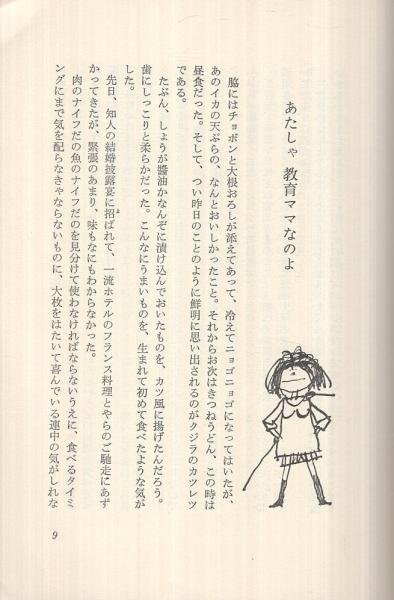 あたしゃ教育ママなのよ
脇にはチョボンと大根おろしが添えてあって、冷えてニョゴニョゴになってはいたが、
あのイカの天ぷらの、なんとおいしかったこと。それからお次はきつねうどん、この時は
昼食だった。そして、つい昨日のことのように鮮明に思い出されるのがクジラのカツレツ
である。
たぶん、しょうが醬油かなんぞに漬け込んでおいたものを、カツ風に揚げたんだろう。
歯にしっこりと柔らかだった。こんなにうまいものを、生まれて初めて食べたような気が
した。
先日、知人の結婚披露宴に招ばれて、一流ホテルのフランス料理とやらのご馳走にあず
かってきたが、緊張のあまり、味もなにもわからなかった。
肉のナイフだの魚のナイフだのを見分けて使わなければならないうえに、食べるタイミ
ングにまで気を配らなきゃならないものに、大枚をはたいて喜んでいる連中の気がしれな
9